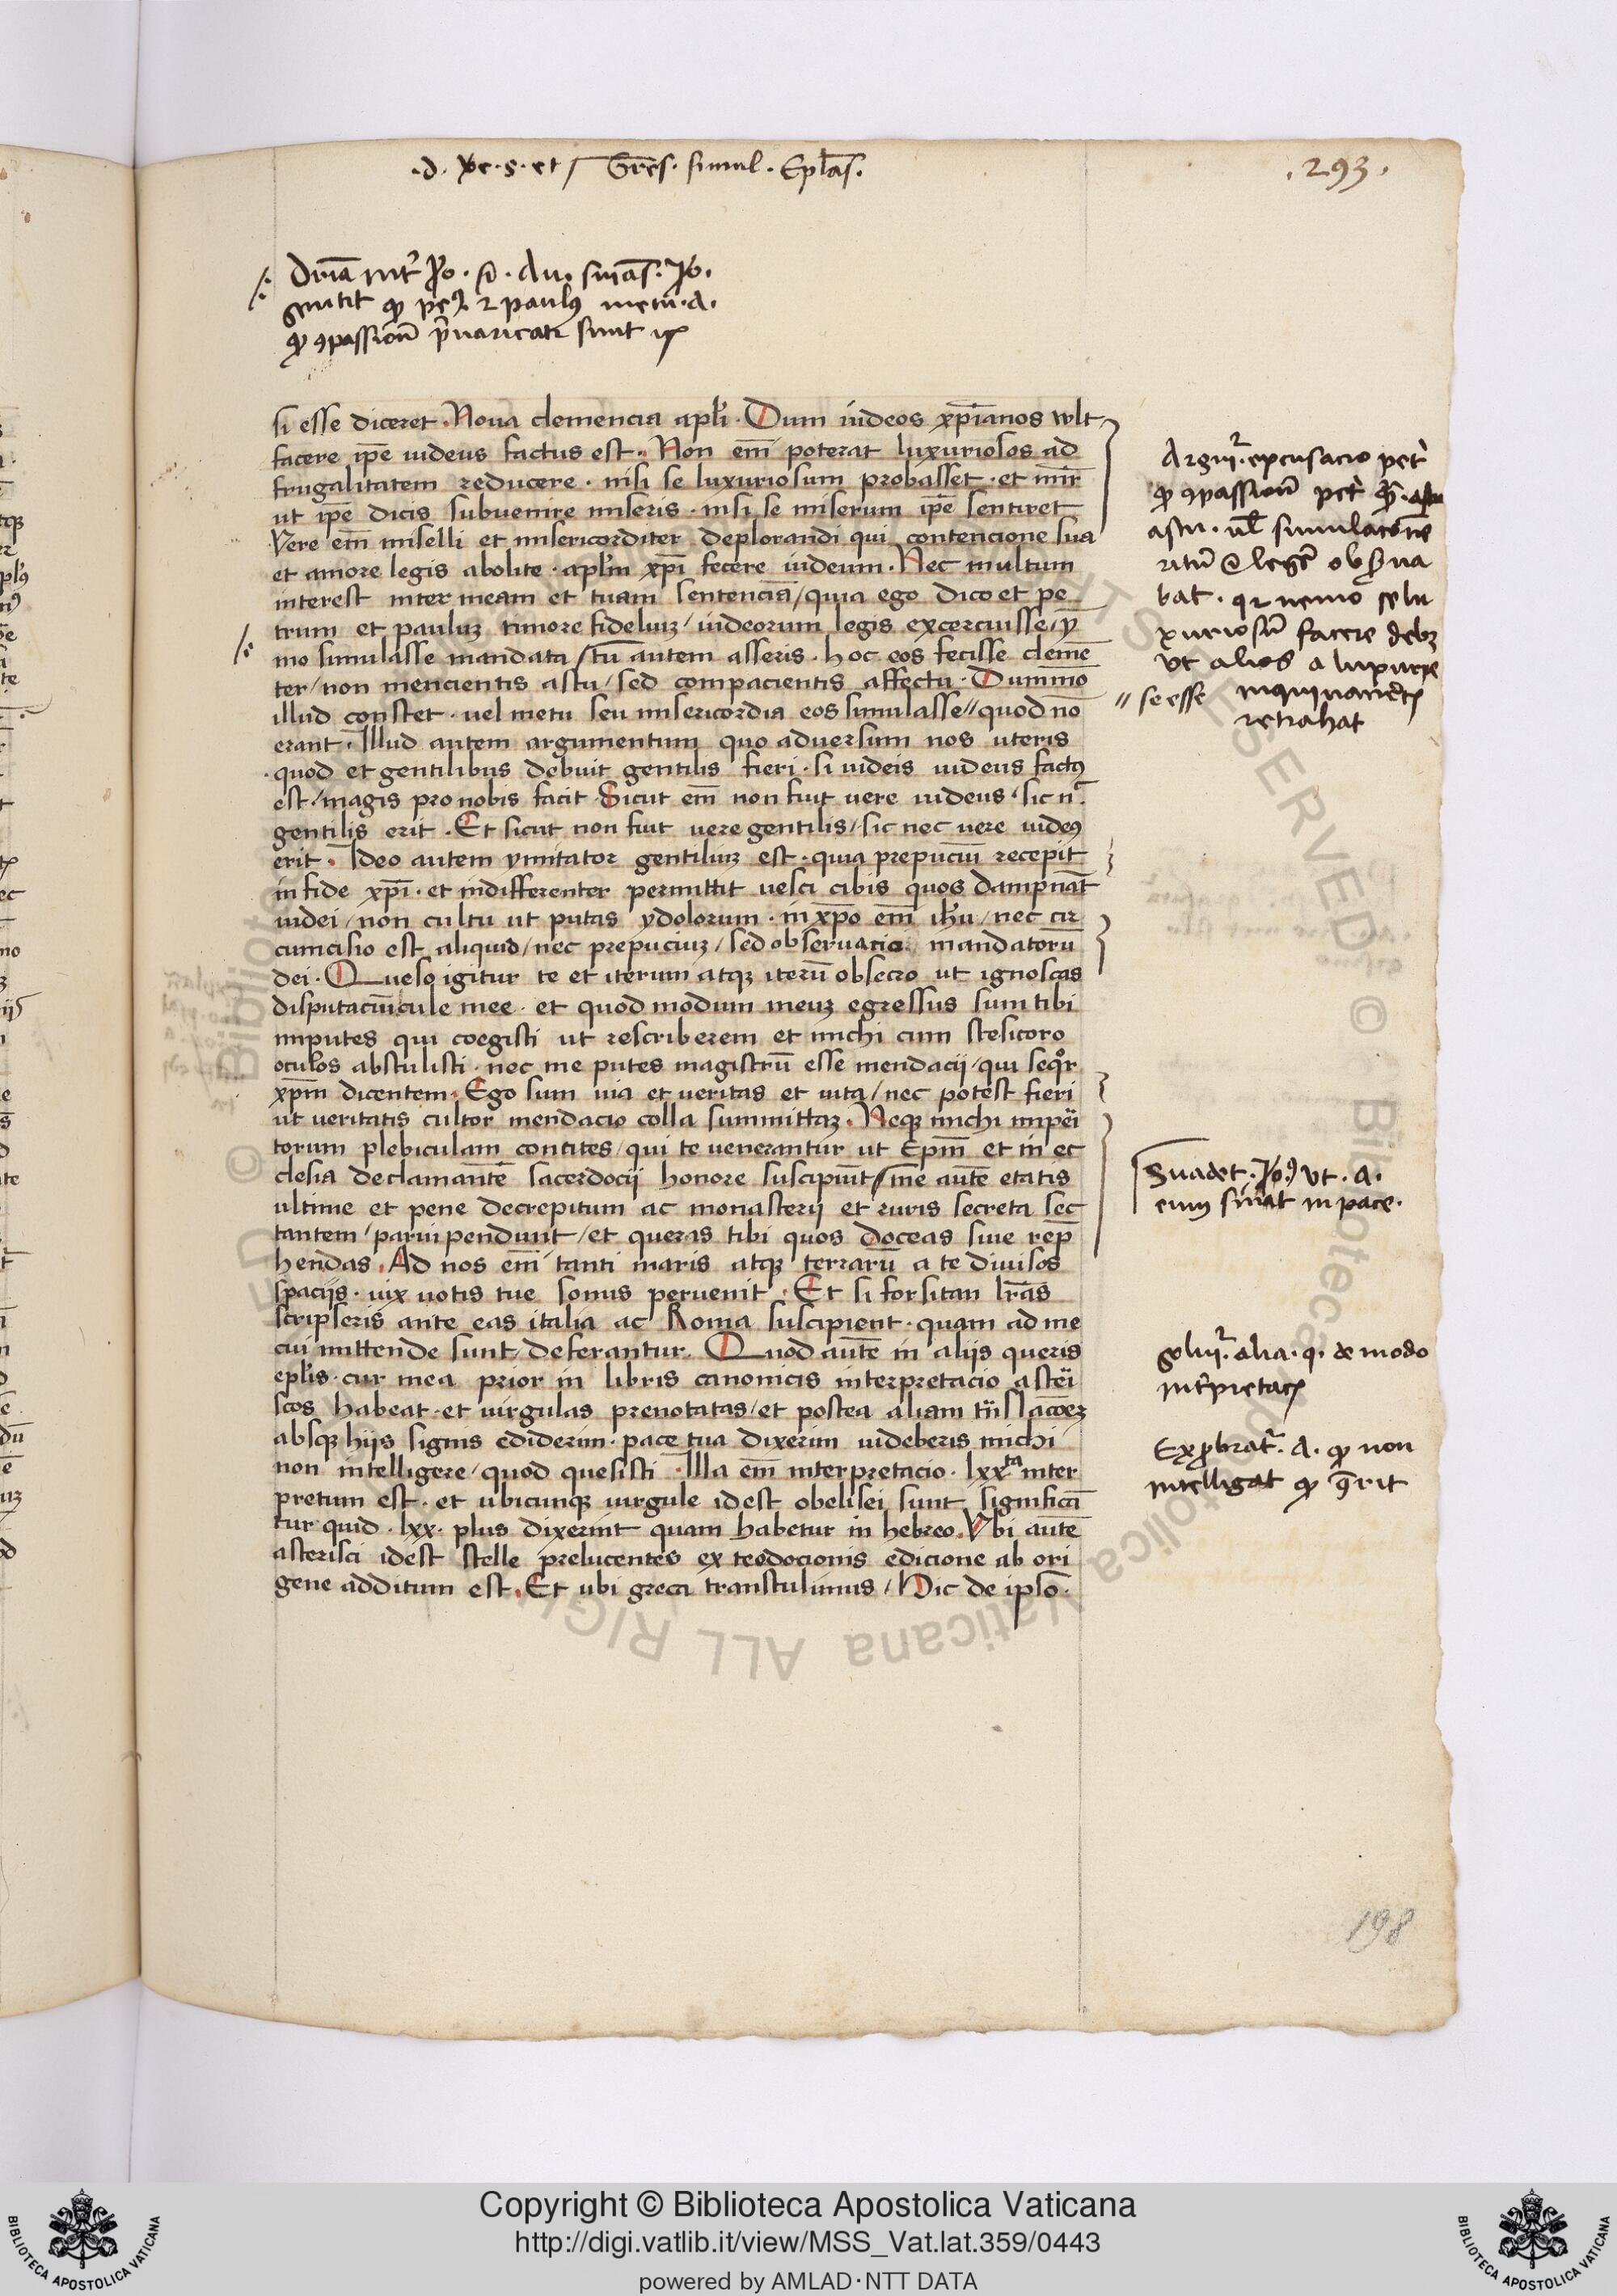 .293.
si esse diceret. Noua clemencia apl̃i. Dum iudeos xp̃ianos wlt
facere ip̃e iudeus factus est. Non em̃ poterat luxuriosos ad
frugalitatem reducere. nisi se luxuriosum probasset. et mĩr
ut ip̃e dicis subuenire miseris. nisi se miserum ip̃e sentiret
Vere em̃ miselli et misericorditer deplorandi qui contencione sua
et amore legis abolite. apl̃m xp̃i fecere iudeum. Nec multum
interest inter meam et tuam sentenciã/ quia ego dico et pe
trum et pauluꝫ timore fideliuꝫ/ iudeorum legis excercuisse/ ỹ
mo simulasse mandata/ tu autem asseris. hoc eos fecisse clemẽ
ter/ non mencientis astu/ sed compacientis affectu. Dummõ
illud constet. uel metu seu misericordia eos simulasse// quod nõ
erant. Illud autem argumentum quo aduersum nos uteris
quod et gentilibus debuit gentilis fieri. si iudeis iudeus factꝰ
est/ magis pro nobis facit. Sicut em̃ non fuit uere iudeus. sic n̄
gentilis erit. Et sicut non fuit uere gentilis/ sic nec uere iudeꝰ
erit. Ideo autem ymitator gentiliuꝫ est. quia prepuciũ recepit
in fide xp̃i. et indifferenter permittit uesci cibis quos dampnãt
iudei/ non cultu ut putas ydolorum. in xp̃o em̃ ih̃u/ nec cir
cumcisio est aliquid/ nec prepuciuꝫ/ sed obseruatio mandatorũ
dei. Queso igitur te et iterum atqꝫ iterũ obsecro ut ignoscas
disputaciũcule mee. et quod modum meuꝫ egressus sum tibi
imputes qui coegisti ut rescriberem et michi cum stesicoro
oculos abstulisti. nec me putes magistrũ esse mendacij/ qui seqr̃
xp̃m dicentem. Ego sum uia et ueritas et uita/ nec potest fieri
ut ueritatis cultor mendacio colla summittaꝫ. Neqꝫ michi impei
torum plebiculam concites/ qui te uenerantur ut Ep̃m et in ec
clesia declamantẽ sacerdocij honore suscipiũt/ me autẽ etatis
ultime et pene decrepitum ac monasterij et ruris secreta sec
tantem/ paruipendunt/ et queras tibi quos doceas siue rep̃
hendas. Ad nos em̃ tanti maris atqꝫ terrarũ a te diuisos
spacijs. uix uotis tue sonus peruenit. Et si forsitan lr̃as
scripseris ante eas italia ac Roma suscipient. quam ad me
cui mittende sunt/ deferantur. Quod autẽ in alijs queris
epl̃is. cur mea prior in libris canonicis interpretacio astei
scos habeat. et uirgulas prenotatas/ et postea aliam
absqꝫ hijs signis ediderim. pace tua dixerim uideberis michi
non intelligere/ quod quesisti. Illa em̃ interpretacio. lxxta inter
pretum est. et ubicunqꝫ uirgule idest obelisci sunt significã
tur quid. lxx. plus dixerint quam habetur in hebreo. Vbi autẽ
asterisci idest stelle prelucentes ex teodocionis edicione ab ori
gene additum est. Et ubi greca transtulimus/ Hic de ipsõ.
// se esse
Suadet. Io. vt. A.
eum sinat in pace.
intelligat qd̃ q̃rit
198
Copyright © Biblioteca Apostolica Vaticana
http://digi.vatlib.it/view/MSS_Vat.lat.359/0443
powered by AMLAD·NTT DATA
BIBLIOTECA APOSTOLICA VATICANA
BIBLIOTECA APOSTOLICA VATICANA